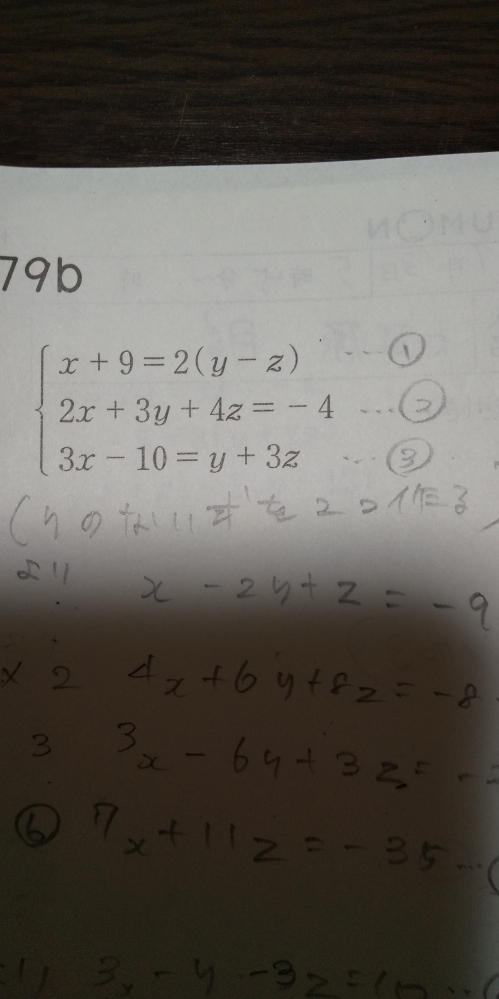 79b
x + 9 = 2(y − z) ... ①
2x + 3y + 4z = − 4 ... ②
3x − 10 = y + 3z ... ③
(yのない式を2つ作る
より x − 2y + z = − 9
× 2 4x + 6y + 8z = − 8
3 3x − 6y + 3z = −
⑥ 7x + 11z = − 35 ...
3x − y − 3z = 10 ...